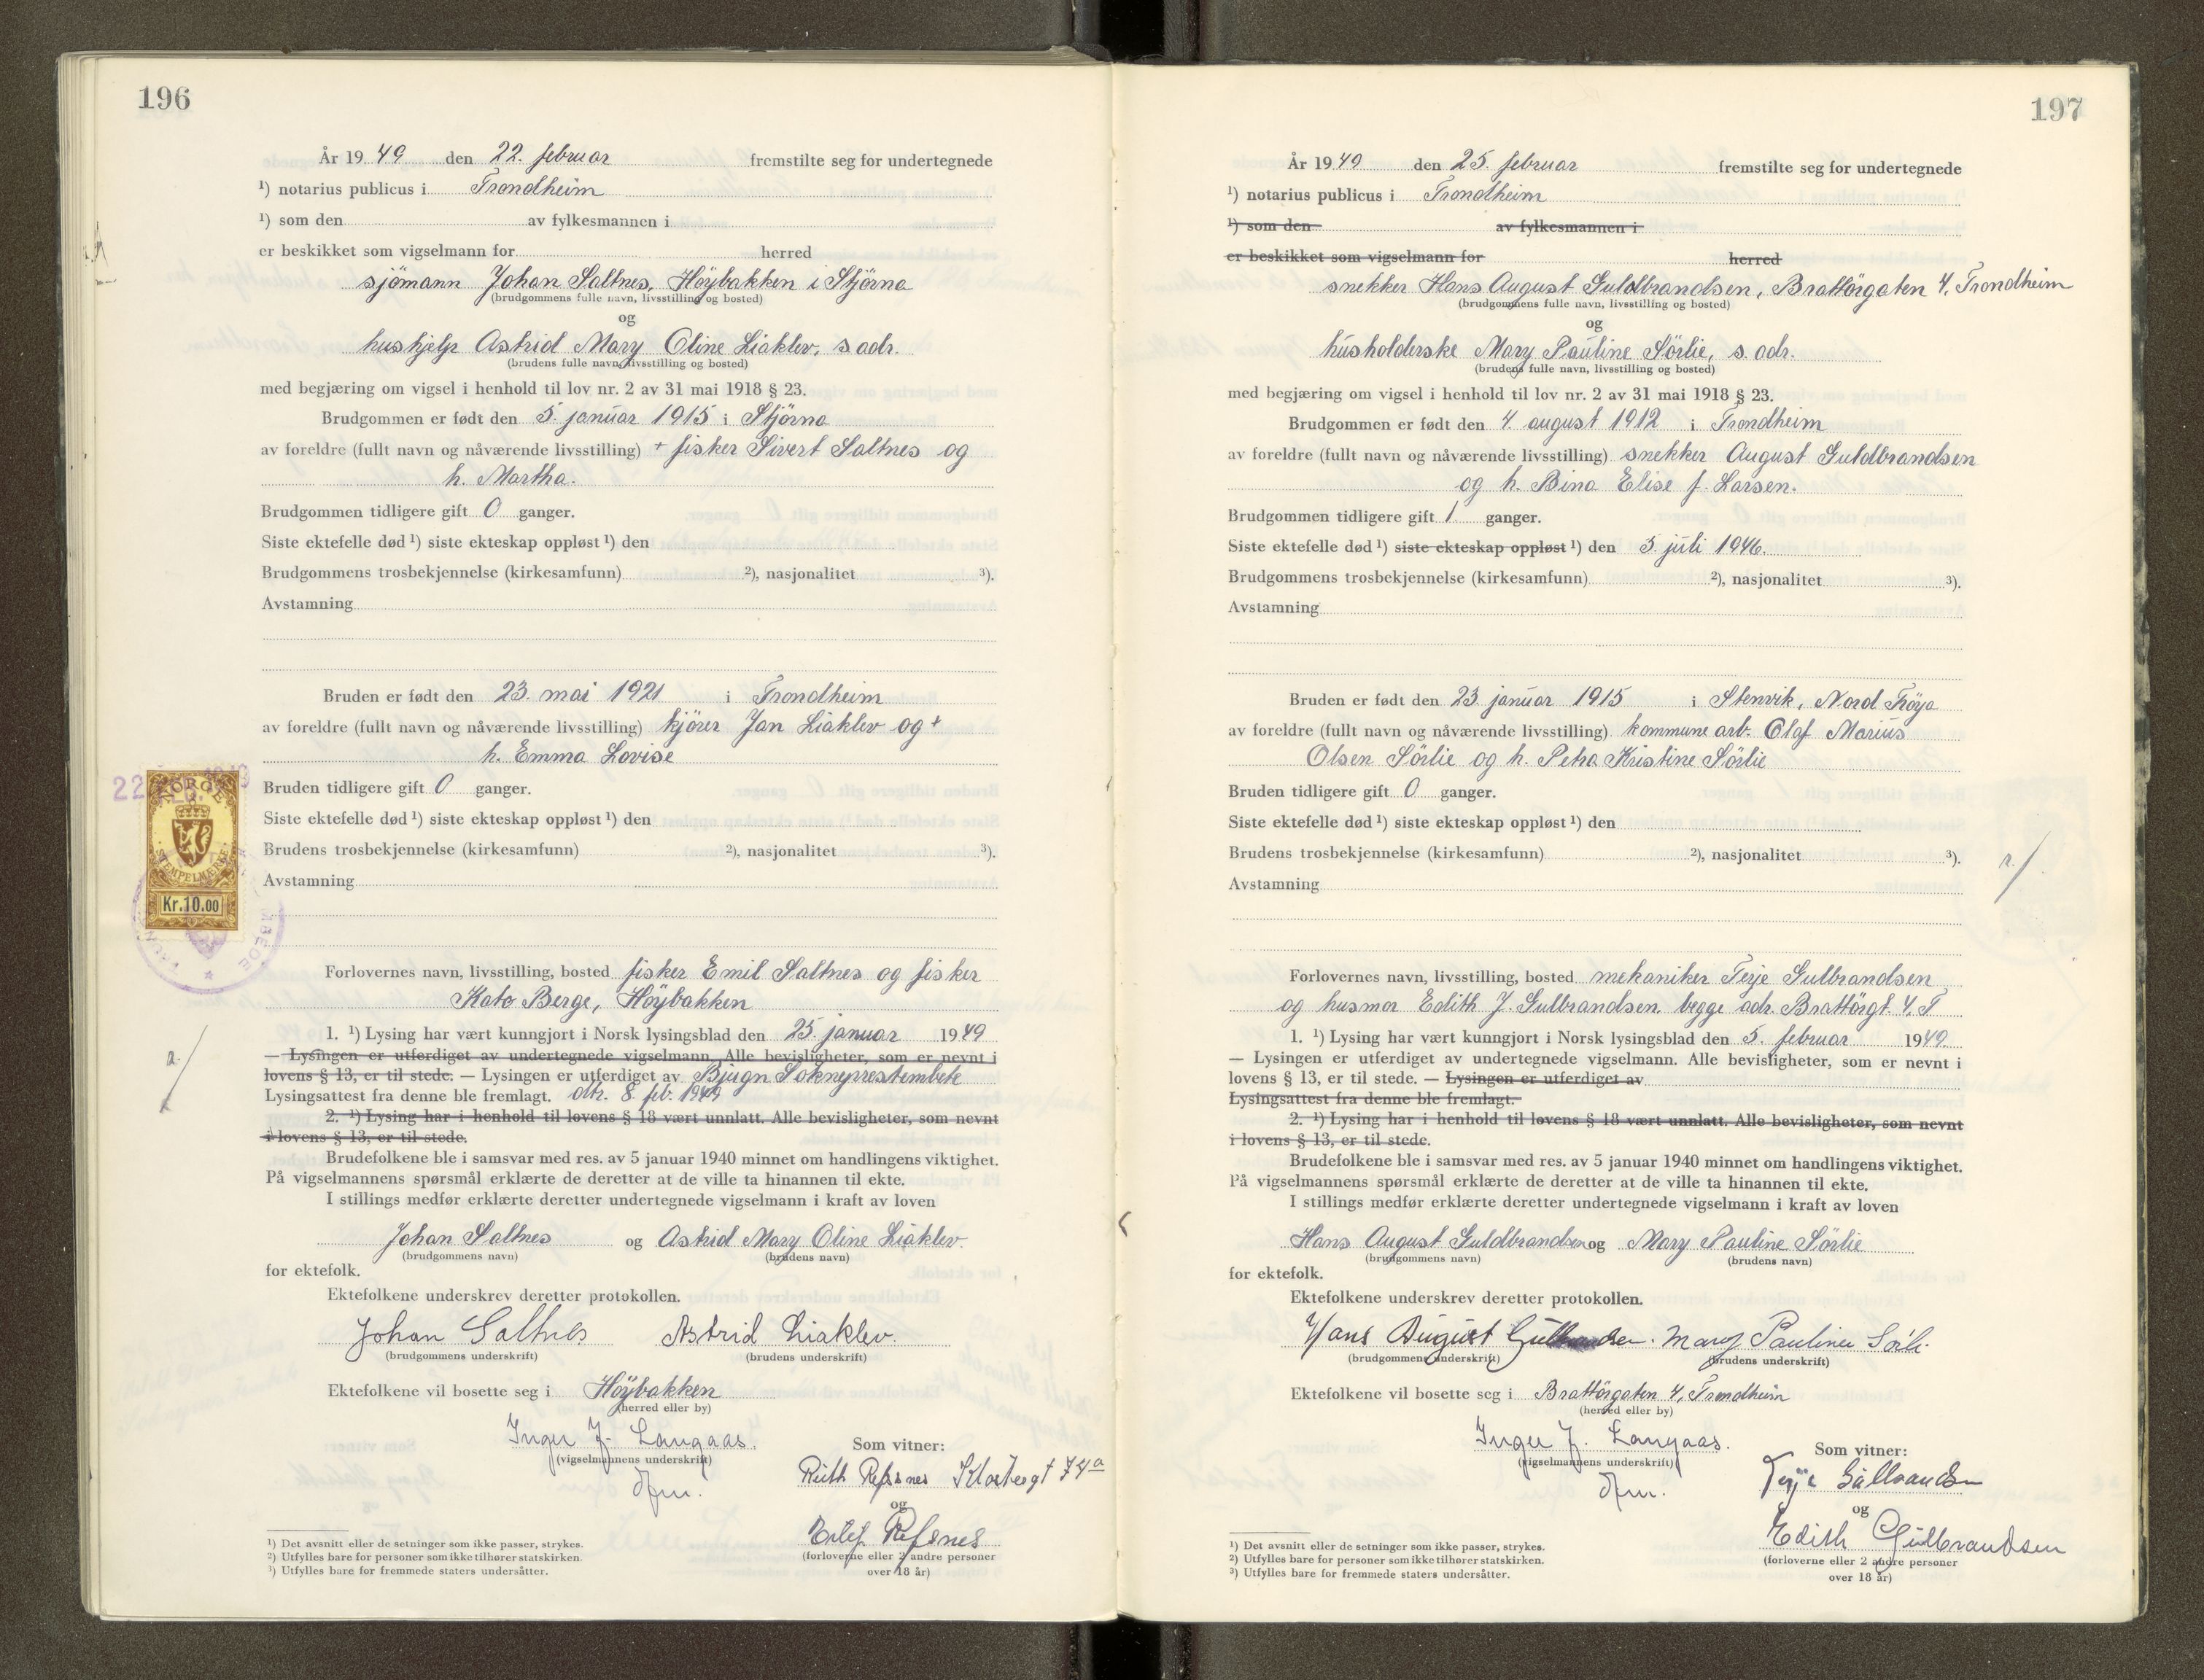 196
År 19 49 den 22. februar fremstilte seg for undertegnede
¹) notarius publicus i Trondheim
¹) som den av fylkesmannen i
er beskikket som vigselmann for herred
sjömann Johan Saltnes, Höybakken i Stjörna
(brudgommens fulle navn, livsstilling og bosted)
og
hushjelp Astrid Mary Oline Liaklev, s adr.
(brudens fulle navn, livsstilling og bosted)
med begjæring om vigsel i henhold til lov nr. 2 av 31 mai 1918 § 23.
Brudgommen er født den 5. januar 1915 i Stjörna
av foreldre (fullt navn og nåværende livsstilling) + fisker Sivert Saltnes og
h. Martha.
Brudgommen tidligere gift 0 ganger.
Siste ektefelle død ¹) siste ekteskap oppløst ¹) den
Brudgommens trosbekjennelse (kirkesamfunn) ²), nasjonalitet ³).
Avstamning
Bruden er født den 23. mai 1921 i Trondheim
av foreldre (fullt navn og nåværende livsstilling) kjörer Jan Liaklev og +
h. Emma Lovise
Bruden tidligere gift 0 ganger.
Siste ektefelle død ¹) siste ekteskap oppløst ¹) den
Brudens trosbekjennelse (kirkesamfunn) ²), nasjonalitet ³).
Avstamning
NORGE
STEMPELMERKE
Kr. 10.00
Forlovernes navn, livsstilling, bosted fisker Emil Saltnes og fisker
Kato Berge, Höybakken
1. ¹) Lysing har vært kunngjort i Norsk lysingsblad den 25 januar 19 49
— Lysingen er utferdiget av undertegnede vigselmann. Alle bevisligheter, som er nevnt i
lovens § 13, er til stede. — Lysingen er utferdiget av Bjugn Sokneprestembete
Lysingsattest fra denne ble fremlagt. dtr. 8. feb. 1949
2. ¹) Lysing har i henhold til lovens § 18 vært unnlatt. Alle bevisligheter, som nevnt
i lovens § 13, er til stede.
Brudefolkene ble i samsvar med res. av 5 januar 1940 minnet om handlingens viktighet.
På vigselmannens spørsmål erklærte de deretter at de ville ta hinannen til ekte.
I stillings medfør erklærte deretter undertegnede vigselmann i kraft av loven
Johan Saltnes og Astrid Mary Oline Liaklev.
(brudgommens navn) (brudens navn)
for ektefolk.
Ektefolkene underskrev deretter protokollen.
Johan Saltnes Astrid Liaklev.
(brudgommens underskrift) (brudens underskrift)
Ektefolkene vil bosette seg i Höybakken
(herred eller by)
Inger J. Langaas.
(vigselmannens underskrift)
dfm.
Som vitner:
Ruth Refsnes
og
Refsnes
(forloverne eller 2 andre personer
over 18 år)
¹) Det avsnitt eller de setninger som ikke passer, strykes.
²) Utfylles bare for personer som ikke tilhører statskirken.
³) Utfylles bare for fremmede staters undersåtter.
197
År 19 49 den 25. februar fremstilte seg for undertegnede
¹) notarius publicus i Trondheim
¹) som den av fylkesmannen i
er beskikket som vigselmann for herred
snekker Hans August Guldbrandsen, Brattörgaten 4, Trondheim
(brudgommens fulle navn, livsstilling og bosted)
og
husholderske Mary Pauline Sörlie, s. adr.
(brudens fulle navn, livsstilling og bosted)
med begjæring om vigsel i henhold til lov nr. 2 av 31 mai 1918 § 23.
Brudgommen er født den 4. august 1912 i Trondheim
av foreldre (fullt navn og nåværende livsstilling) snekker August Guldbrandsen
og h. Bina Elise f. Larsen.
Brudgommen tidligere gift 1 ganger.
Siste ektefelle død ¹) siste ekteskap oppløst ¹) den 5. juli 1946.
Brudgommens trosbekjennelse (kirkesamfunn) ²), nasjonalitet ³).
Avstamning
Bruden er født den 23 januar 1915 i Stenvik, Nord Fröya
av foreldre (fullt navn og nåværende livsstilling) kommune arb. Olaf Marius
Olsen Sörlie og h. Petra Kristine Sörlie
Bruden tidligere gift 0 ganger.
Siste ektefelle død ¹) siste ekteskap oppløst ¹) den
Brudens trosbekjennelse (kirkesamfunn) ²), nasjonalitet ³).
Avstamning
Forlovernes navn, livsstilling, bosted mekaniker Terje Gulbrandsen
og husmor Edith J. Gulbrandsen. begge adr. Brattörgt. 4, T
1. ¹) Lysing har vært kunngjort i Norsk lysingsblad den 5. februar 19 49.
— Lysingen er utferdiget av undertegnede vigselmann. Alle bevisligheter, som er nevnt i
lovens § 13, er til stede. — Lysingen er utferdiget av
Lysingsattest fra denne ble fremlagt.
2. ¹) Lysing har i henhold til lovens § 18 vært unnlatt. Alle bevisligheter, som nevnt
i lovens § 13, er til stede.
Brudefolkene ble i samsvar med res. av 5 januar 1940 minnet om handlingens viktighet.
På vigselmannens spørsmål erklærte de deretter at de ville ta hinannen til ekte.
I stillings medfør erklærte deretter undertegnede vigselmann i kraft av loven
Hans August Guldbrandsen og Mary Pauline Sörlie
(brudgommens navn) (brudens navn)
for ektefolk.
Ektefolkene underskrev deretter protokollen.
Hans August Mary Pauline
(brudgommens underskrift) (brudens underskrift)
Ektefolkene vil bosette seg i Brattörgaten 4, Trondheim
(herred eller by)
Inger J. Langaas.
(vigselmannens underskrift)
dfm.
Som vitner:
Terje Gulbrandsen
og
Edith Gulbrandsen
(forloverne eller 2 andre personer
over 18 år)
¹) Det avsnitt eller de setninger som ikke passer, strykes.
²) Utfylles bare for personer som ikke tilhører statskirken.
³) Utfylles bare for fremmede staters undersåtter.